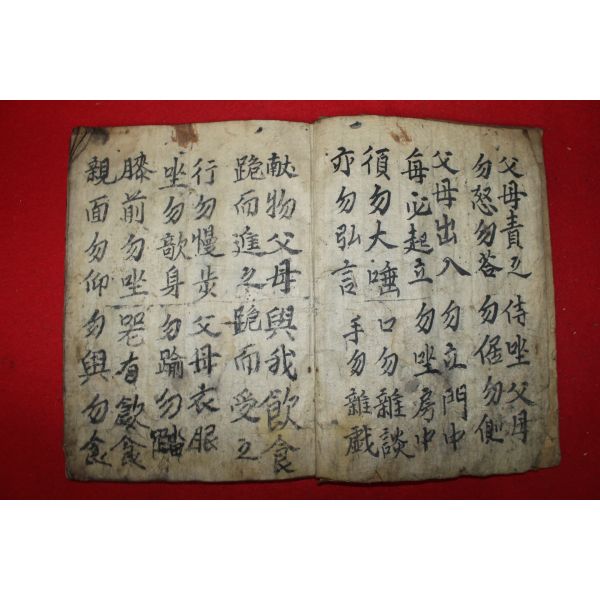 父母責之 侍坐父母
勿怒勿答 勿倨勿側
父母出入 勿立門中
每必起立 勿坐房中
須勿大唾 口勿雜談
亦勿弘言 手勿雜戱
献物父母 與我飮食
跪而進之 跪而受之
行勿慢步 父母衣服
坐勿欹身 勿踰勿踏
膝前勿坐 器有飮食
親面勿仰 勿與勿食